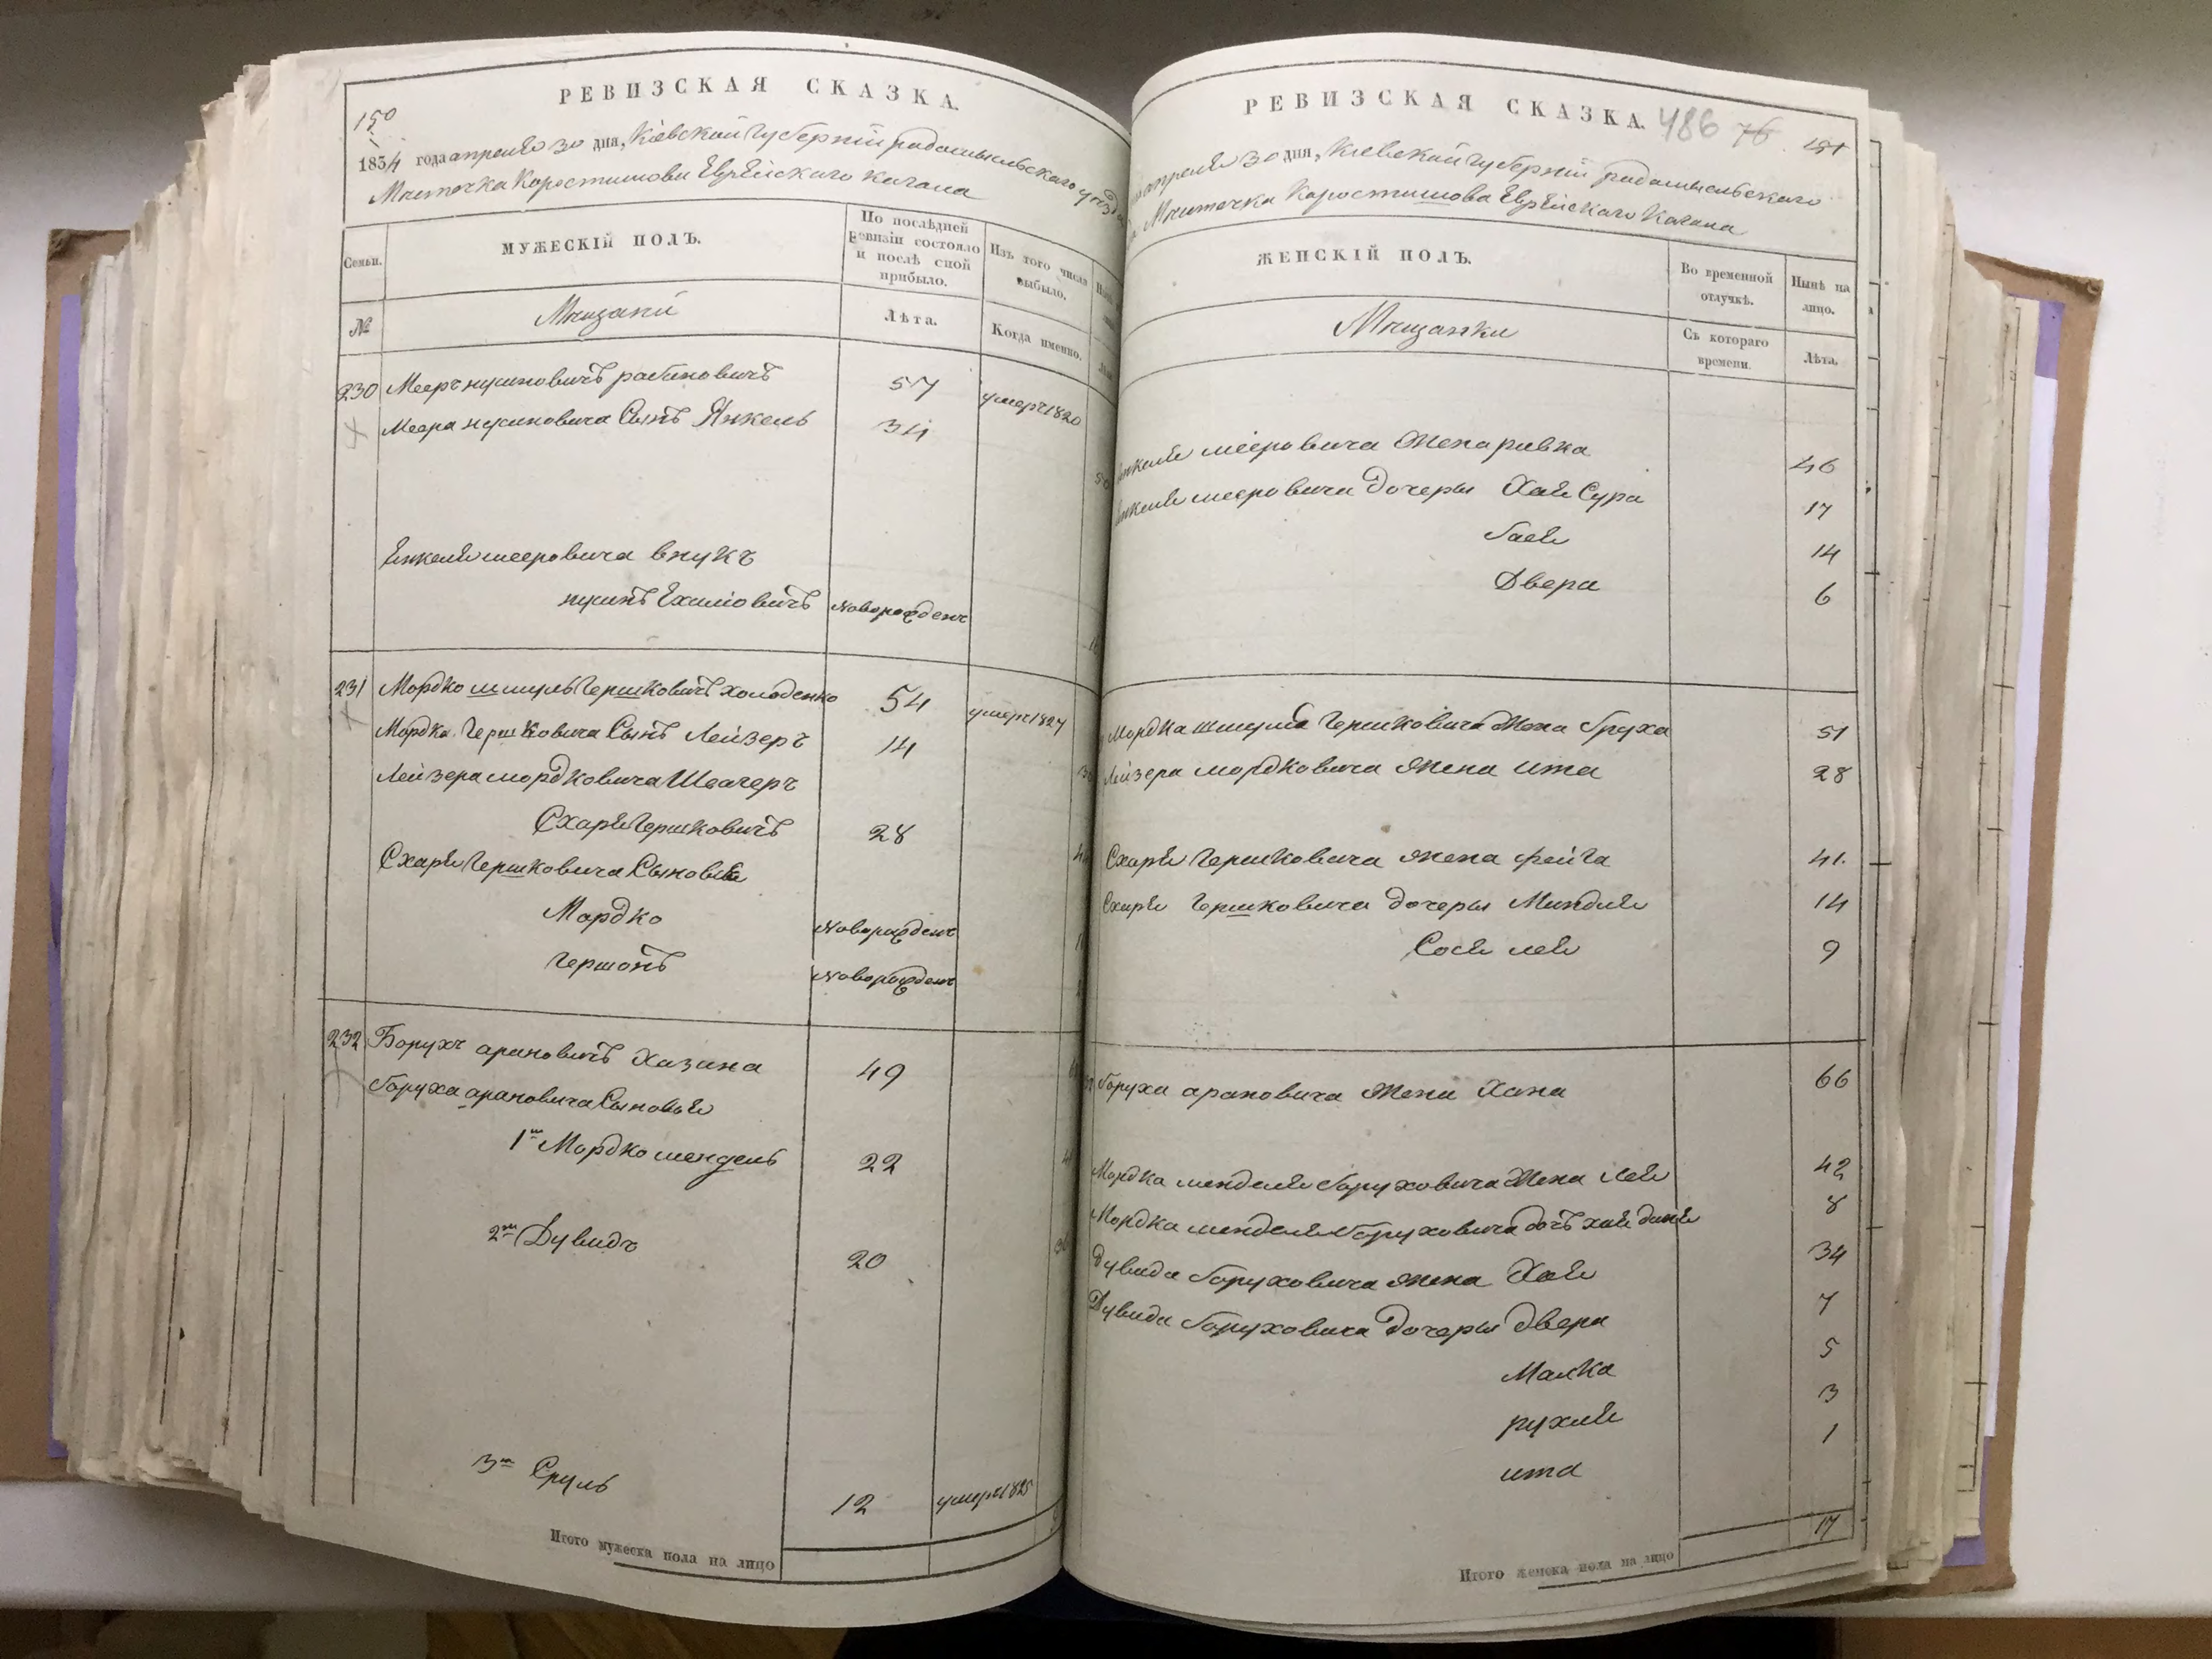 РЕВИЗСКАЯ СКАЗКА.
150
1834 года апреля 30 дня, Кіевской Губерніи радомысльского уезда
Местечка Коростишова Еврейского Кагала
Семьи.
МУЖЕСКІЙ ПОЛЪ.
По послѣдней Ревизіи состояло и послѣ оной прибыло.
Изъ того числа выбыло.
№
Мещани
Лѣта.
Когда именно.
230 Мееръ нусиновичъ рабиновичъ 57 умеръ 1820
Меера нусиновича Сынъ Янкель 34
Янкеля мееровича внукъ
нусинъ Ехиліовичъ Новорожденъ
231 Мордко шмуль Гершковичъ холоденко 54 умеръ 1827
Мордка Гершковича Сынъ Лейзеръ 14
Лейзера мордковича Швагеръ
Схаря Гершковичъ 28
Схаря Гершковича Сыновья
Мордко Новорожденъ
Гершонъ Новорожденъ
232 Борухъ арановичъ Хазина 49
Боруха арановича Сыновья
1й Мордко мендель 22
2й Дувидъ 20
3й Сруль 12 умеръ 1825
Итого мужеска пола на лицо
РЕВИЗСКАЯ СКАЗКА. 486 76 151
апреля 30 дня, Кіевской Губерніи радомысльского
Местечка Коростишова Еврейского Кагала
ЖЕНСКІЙ ПОЛЪ.
Во временной отлучкѣ.
Нынѣ на лицо.
Мещанки
Съ котораго времени.
Лѣта.
Янкеля мееровича Жена ривка 46
Янкеля мееровича дочеры Хая Сура 17
бася 14
Двера 6
Мордка шмуля Гершковича Жена Груха 51
Лейзера мордковича жена ита 28
Схаря Гершковича жена фейга 41.
Схаря Гершковича дочеры Миндля 14
Сося лея 9
Боруха арановича Жена Хана 66
Мордка менделя Боруховича Жена лея 42
Мордка менделя Боруховича дочъ хая 8
Дувида Боруховича жена Хая 34
Дувида Боруховича дочеры двера 7
Малка 5
рухля 3
ита 1
17
Итого женска пола на лицо